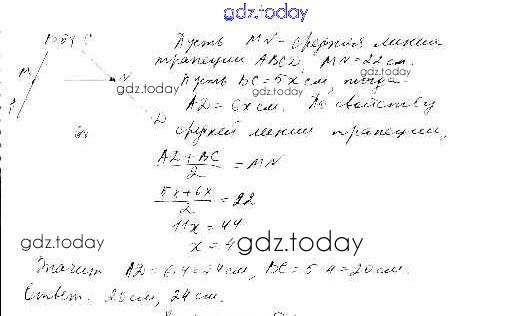 gdz.today
Пусть MN - средняя линия
трапеции ABCD, MN = 22 см.
gdz.today
Пусть BC = 5x см, тогда
gdz.today
AD = 6x см. По свойству
M
N
D
средней линии трапеции,
AD + BC / 2 = MN
5x + 6x / 2 = 22
11x = 44
x = 4
gdz.today
gdz.today
Значит AD = 6·4 = 24 см, BC = 5·4 = 20 см.
Ответ. 20 см, 24 см.